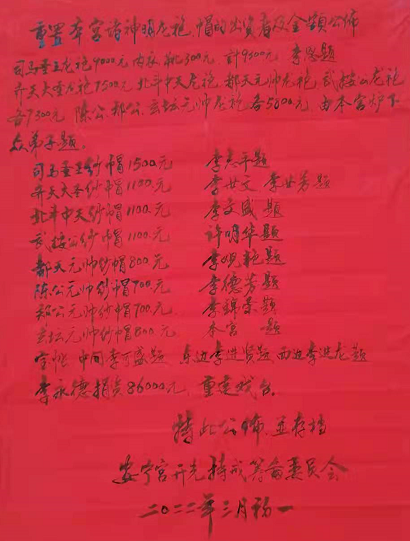 重置本宫诸神明龙袍、帽的出资者及金额公佈
司马圣王龙袍9000元 内衣 靴300元 计9300元 李 题
齐天大圣龙袍7500元 北斗中天龙袍 都天元帅龙袍 武 公龙袍
各7300元 陈公 郑公 玄坛元帅龙袍各5800元 由本宫炉下
众弟子题.
司马圣王纱帽1500元 李志平题
齐天大圣纱帽1100元 李世文 李世芳题
北斗中天纱帽1100元 李文盛题
武 公纱帽1100元 许明华题
都天元帅纱帽800元 李 题
陈公元帅纱帽700元 李德芳题
郑公元帅纱帽700元 李锦 题
玄坛元帅纱帽800元 本宫 题
中间李 盛题 东边李进贤题 西边李进龙题
李永德捐资86000元, 重建戏台.
特此公佈 並存档
安宁宫开光持戒筹备委员会
二〇二二年三月初一